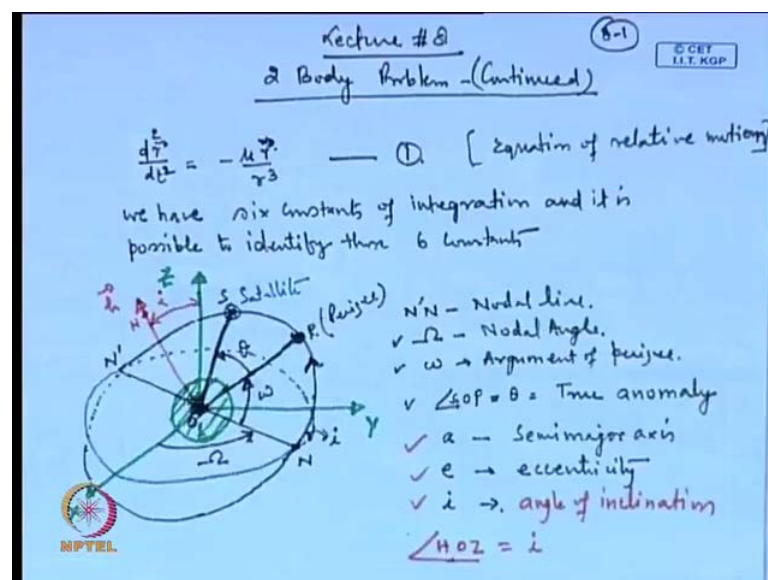 Lecture #8
8-1
© CET
I.I.T. KGP
2 Body Problem - (Continued)
d²r⃗/dt² = - μr⃗/r³ —— ①. [Equation of relative motion]
we have six constants of integration and it is
possible to identify these 6 constants
Z
h⃗
H
i
S Satellite
P (Perigee)
N'
θ
ω
O
Y
Ω
N
i
X
N'N - Nodal line.
✓ Ω - Nodal Angle.
✓ ω → Argument of perigee.
✓ ∠SOP = θ = True anomaly
✓ a - Semimajor axis
✓ e → eccentricity
✓ i →. angle of inclination
∠HOZ = i
NPTEL